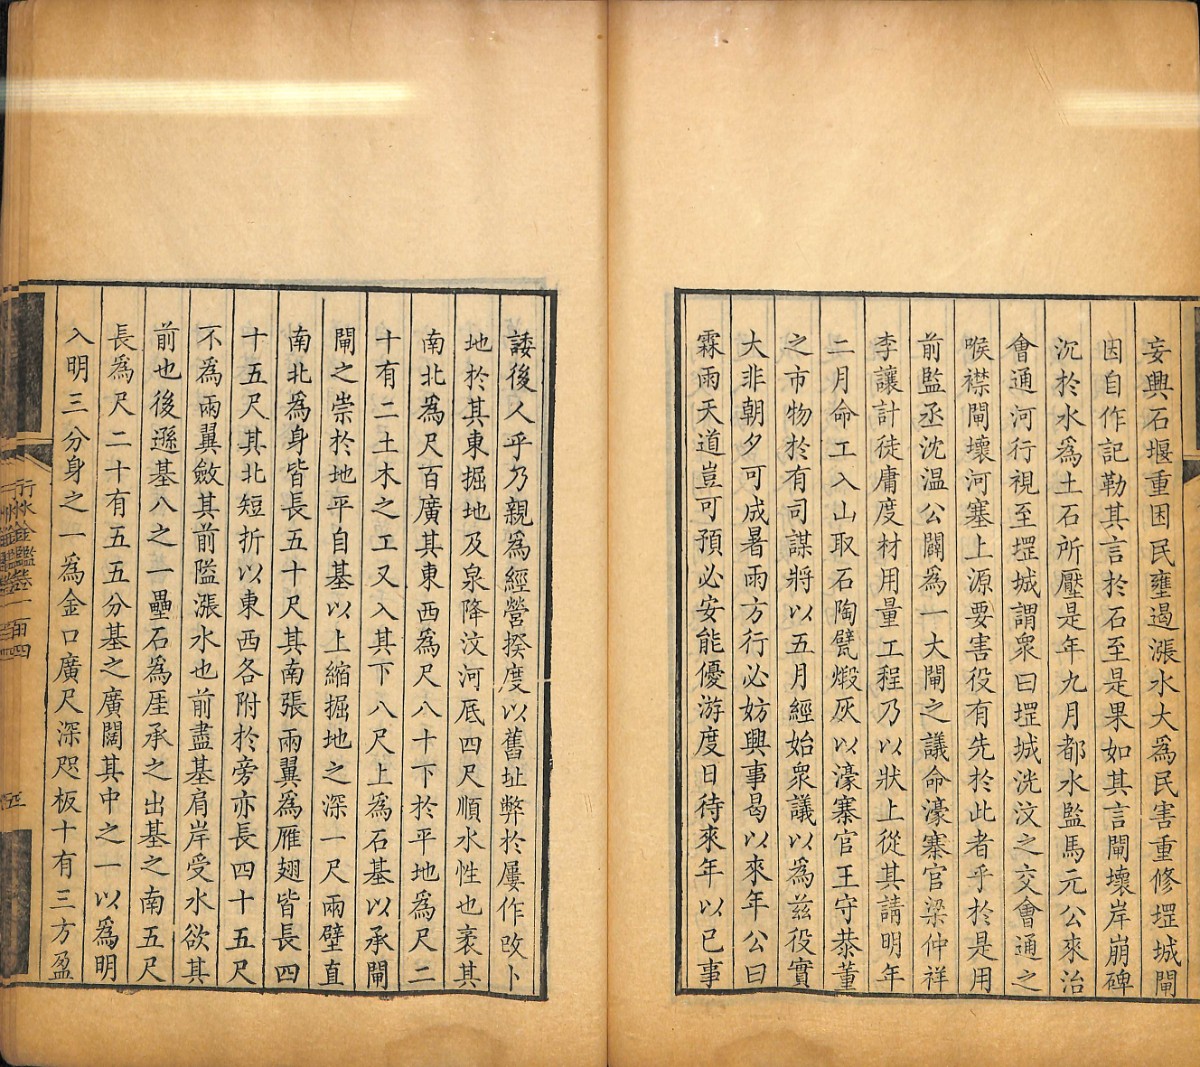 妄興石堰重困民壅遏漲水大為民害重修堽城閘
因自作記勒其言於石至是果如其言閘壞岸崩碑
沉於水為土石所壓是年九月都水監馬元公來治
會通河行視至堽城謂衆曰堽城洸汶之交會通之
喉襟閘壞河塞上源要害役有先於此者乎於是用
前監丞沈温公闢為一大閘之議命濠寨官梁仲祥
李讓計徒庸度材用量工程乃以狀上從其請明年
二月命工入山取石陶甓煅灰以濠寨官王守恭董
之市物於有司謀將以五月經始衆議以為兹役實
大非朝夕可成暑雨方行必妨興事曷以來年公曰
霖雨天道豈可預必安能優游度日待來年以已事
諉後人乎乃親為經營揆度以舊址弊於屢作改卜
地於其東掘地及泉降汶河底四尺順水性也袤其
南北為尺百廣其東西為尺八十下於平地為尺二
十有二土木之工又入其下八尺上為石基以承閘
閘之崇於地平自基以上縮掘地之深一尺兩壁直
南北為身皆長五十尺其南張兩翼為雁翅皆長四
十五尺其北短折以東西各附於旁亦長四十五尺
不為兩翼斂其前隘漲水也前盡基肩岸受水欲其
前也後遜基八之一壘石為厓承之出基之南五尺
長為尺二十有五五分基之廣闊其中之一以為明
入明三分身之一為金口廣尺深咫板十有三方盈
行水金鑑卷一百四
五